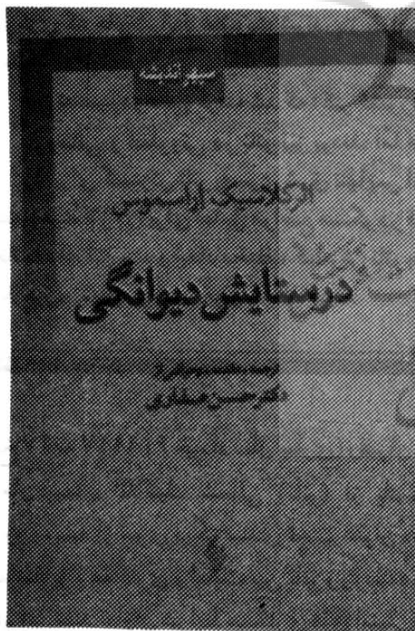 سپهر اندیشه
اثر کلاسیک اراسموس
در ستایش دیوانگی
ترجمه، مقدمه و حواشی از
دکتر حسن صفاری